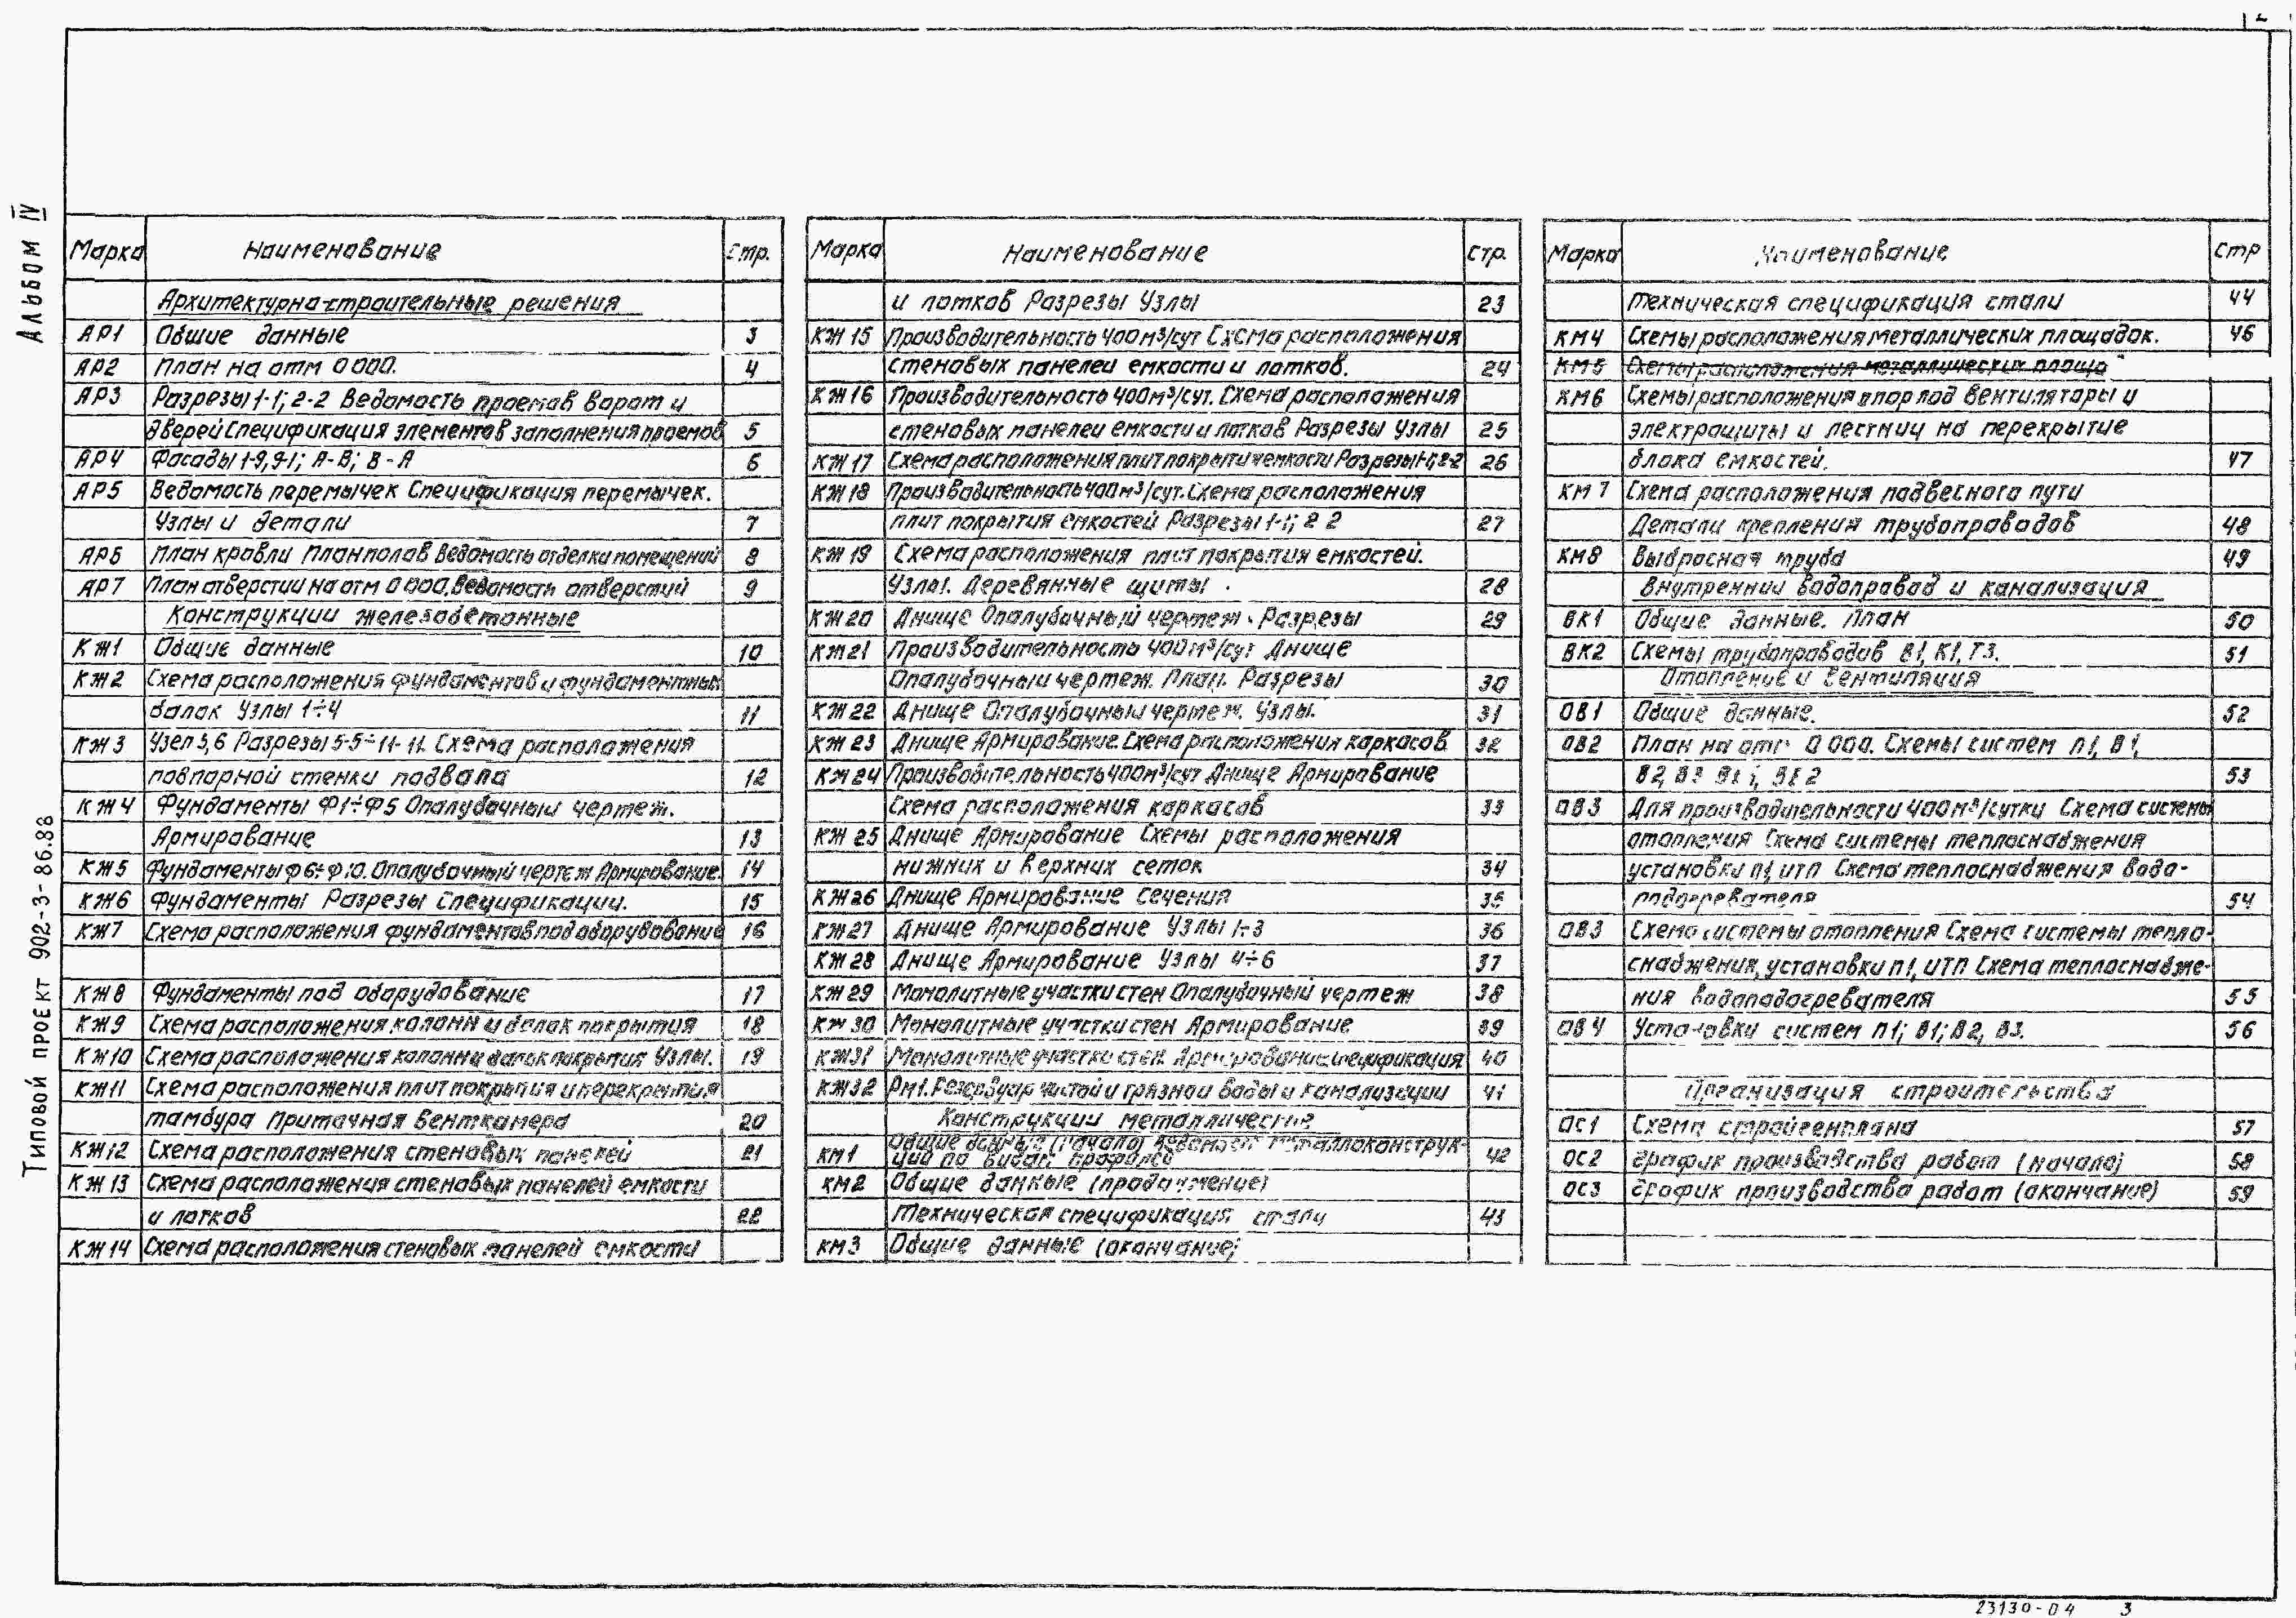 2
Альбом IV
Типовой проект 902-3-86.88
Марка Наименование Стр.
Архитектурно-строительные решения
АР1 Общие данные 3
АР2 План на отм 0000. 4
АР3 Разрезы 1-1; 2-2 Ведомость проемов ворот и
дверей Спецификация элементов заполнения проемов 5
АР4 Фасады 1-9, 9-1; А-В; В-А 6
АР5 Ведомость перемычек Спецификация перемычек.
Узлы и детали 7
АР6 План кровли План полов Ведомость отделки помещений 8
АР7 План отверстий на отм 0000. Ведомость отверстий 9
Конструкции железобетонные
КЖ1 Общие данные 10
КЖ2 Схема расположения фундаментов и фундаментных
балок Узлы 1÷4 11
КЖ3 Узел 5,6 Разрезы 5-5÷11-11. Схема расположения
подпорной стенки подвала 12
КЖ4 Фундаменты Ф1÷Ф5 Опалубочный чертеж.
Армирование 13
КЖ5 Фундаменты Ф6÷Ф10. Опалубочный чертеж Армирование. 14
КЖ6 Фундаменты Разрезы Спецификации. 15
КЖ7 Схема расположения фундаментов под оборудование 16
КЖ8 Фундаменты под оборудование 17
КЖ9 Схема расположения колонн и балок покрытия 18
КЖ10 Схема расположения колонн и балок покрытия Узлы. 19
КЖ11 Схема расположения плит покрытия и перекрытия
тамбура Приточная венткамера 20
КЖ12 Схема расположения стеновых панелей 21
КЖ13 Схема расположения стеновых панелей емкости
и лотков 22
КЖ14 Схема расположения стеновых панелей емкости
Марка Наименование Стр.
и лотков Разрезы Узлы 23
КЖ15 Производительность 400м³/сут Схема расположения
стеновых панелей емкости и лотков. 24
КЖ16 Производительность 400м³/сут. Схема расположения
стеновых панелей емкости и лотков Разрезы Узлы 25
КЖ17 Схема расположения плит покрытия емкости Разрезы 1-1; 2-2 26
КЖ18 Производительность 400м³/сут. Схема расположения
плит покрытия емкостей Разрезы 1-1; 2 2 27
КЖ19 Схема расположения плит покрытия емкостей.
Узлы. Деревянные щиты. 28
КЖ20 Днище Опалубочный чертеж. Разрезы 29
КЖ21 Производительность 400м³/сут Днище
Опалубочный чертеж. План. Разрезы 30
КЖ22 Днище Опалубочный чертеж. Узлы. 31
КЖ23 Днище Армирование. Схема расположения каркасов 32
КЖ24 Производительность 400м³/сут Днище Армирование
Схема расположения каркасов 33
КЖ25 Днище Армирование Схемы расположения
нижних и верхних сеток 34
КЖ26 Днище Армирование Сечения 35
КЖ27 Днище Армирование Узлы 1÷3 36
КЖ28 Днище Армирование Узлы 4÷6 37
КЖ29 Монолитные участки стен Опалубочный чертеж 38
КЖ30 Монолитные участки стен Армирование 39
КЖ31 Монолитные участки стен. Армирование Спецификация 40
КЖ32 Рм1. Резервуар чистой и грязной воды и канализации 41
Конструкции металлические
КМ1 Общие данные (начало) Ведомость металлоконструк-
ций по видам профилей 42
КМ2 Общие данные (продолжение)
Техническая спецификация стали 43
КМ3 Общие данные (окончание)
Марка Наименование Стр
техническая спецификация стали 44
КМ4 Схемы расположения металлических площадок. 46
КМ5 Схемы расположения металлических площа
КМ6 Схемы расположения опор под вентиляторы и
электрощиты и лестниц на перекрытие
блока емкостей. 47
КМ7 Схема расположения подвесного пути
Детали крепления трубопроводов 48
КМ8 Выбросная труба 49
Внутренний водопровод и канализация
ВК1 Общие данные. План 50
ВК2 Схемы трубопроводов В1, К1, Т3. 51
Отопление и вентиляция
ОВ1 Общие данные. 52
ОВ2 План на отм 0000. Схемы систем П1, В1,
В2, В3 ВЕ1, ВЕ2 53
ОВ3 Для производительности 400м³/сутки Схема системы
отопления Схема системы теплоснабжения
установки П1, ИТП Схема теплоснабжения водо-
подогревателя 54
ОВ3 Схема системы отопления Схема системы тепло-
снабжения, установки П1, ИТП Схема теплоснабже-
ния водоподогревателя 55
ОВ4 Установки систем П1; В1; В2, В3. 56
Организация строительства
ОС1 Схема стройгенплана 57
ОС2 График производства работ (начало) 58
ОС3 График производства работ (окончание) 59
23130-04 3